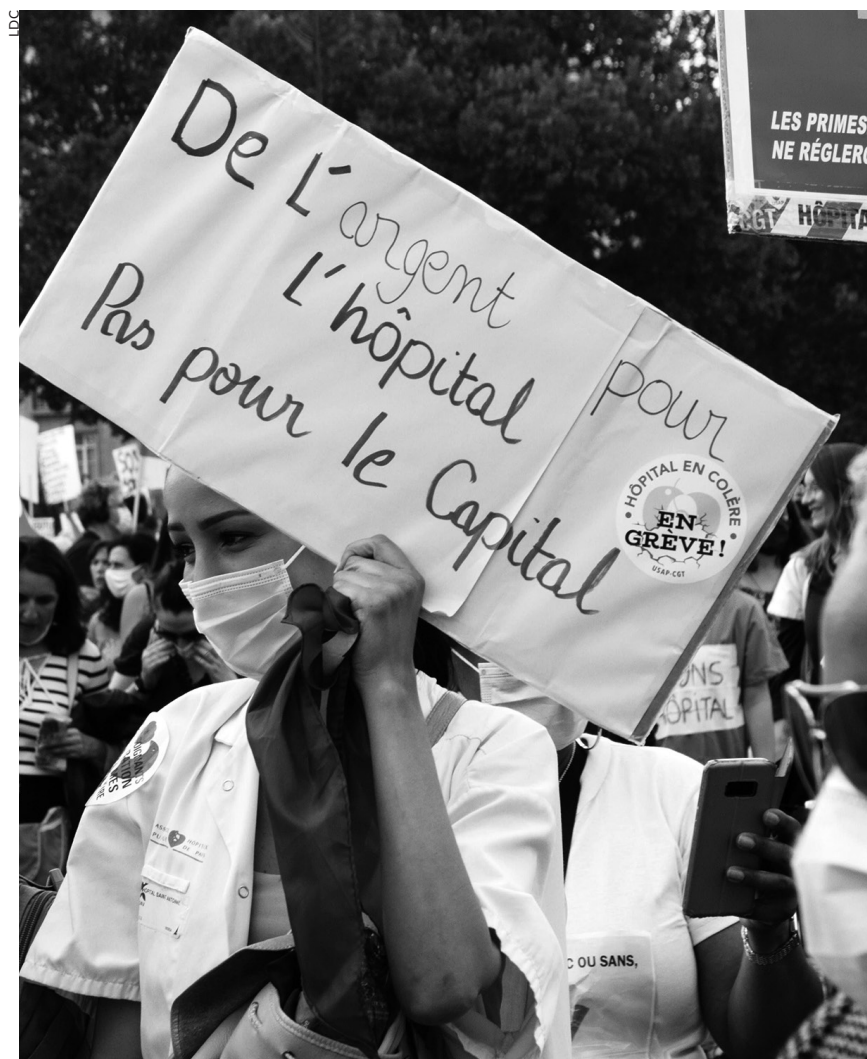 LDC
LES PRIMES
NE RÉGLERO
CGT HÔPITA
De L'argent pour
L'hôpital
Pas pour le Capital
HÔPITAL EN COLÈRE
EN
GRÈVE!
USAP-CGT
ONS
HÔPITAL
C OU SANS,